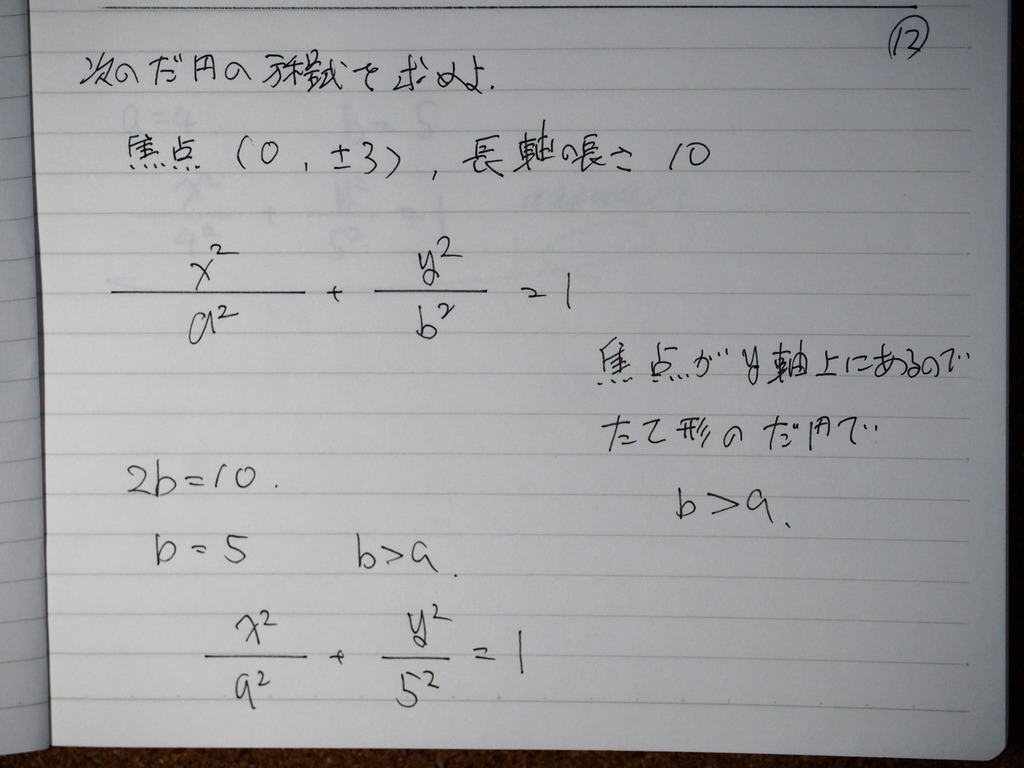 ⑬
次のだ円の方程式を求めよ.
焦点 (0, ±3), 長軸の長さ 10
x²/a² + y²/b² = 1
焦点がy軸上にあるので
たて形のだ円で
b > a.
2b = 10.
b = 5 b > a.
x²/a² + y²/5² = 1